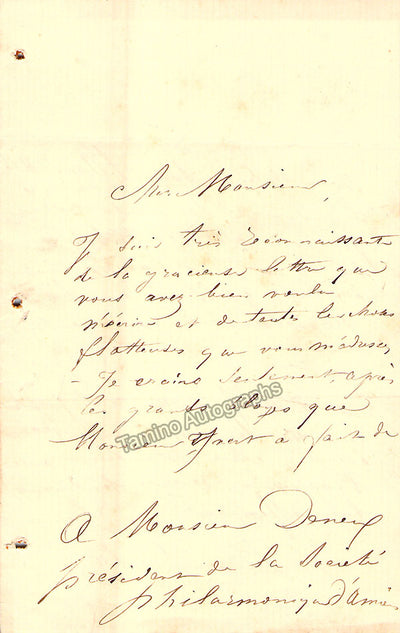 Monsieur,
Je suis très reconnaissante
de la gracieuse lettre que
vous avez bien voulu
m'écrire et de toutes les choses
flatteuses que vous m'adressez,
- Je crains seulement, après
les grands éloges que
Monsieur a fait de
Tamino Autographs
A Monsieur Deneux
président de la Société
philarmonique d'Amiens